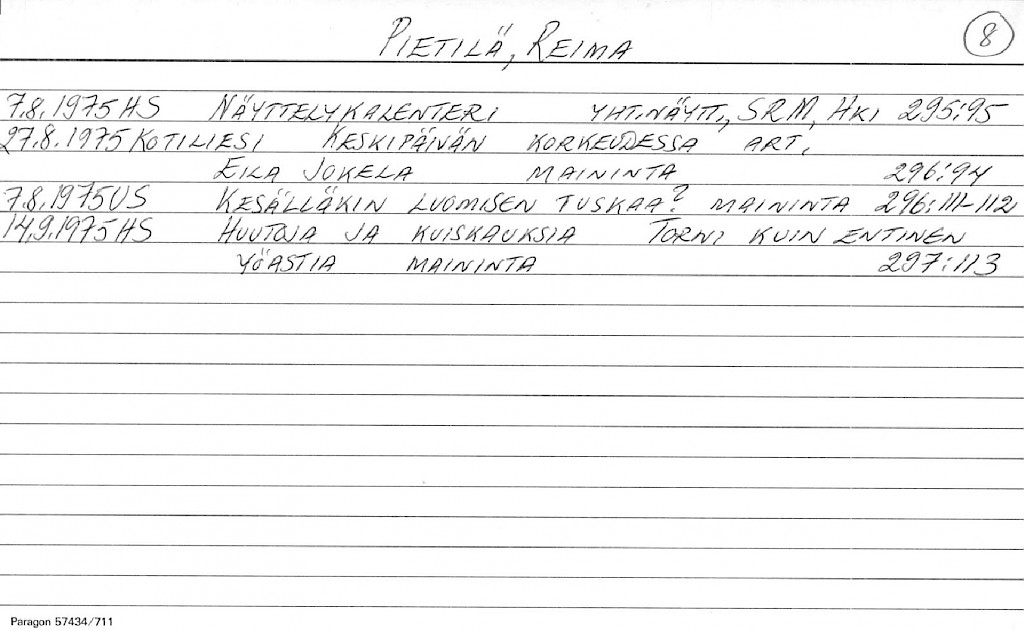 PIETILÄ, REIMA
8
7.8.1975 HS NÄYTTELYKALENTERI YHT.NÄYTT., SRM, HKI 295:95
27.8.1975 KOTILIESI KESKIPÄIVÄN KORKEUDESSA ART.
EILA JOKELA MAININTA 296:94
7.8.1975 US KESÄLLÄKIN LUOMISEN TUSKAA? MAININTA 296:111-112
14.9.1975 HS HUUTOJA JA KUISKAUKSIA TORNI KUIN ENTINEN
YÖASTIA MAININTA 297:113
Paragon 57434/711